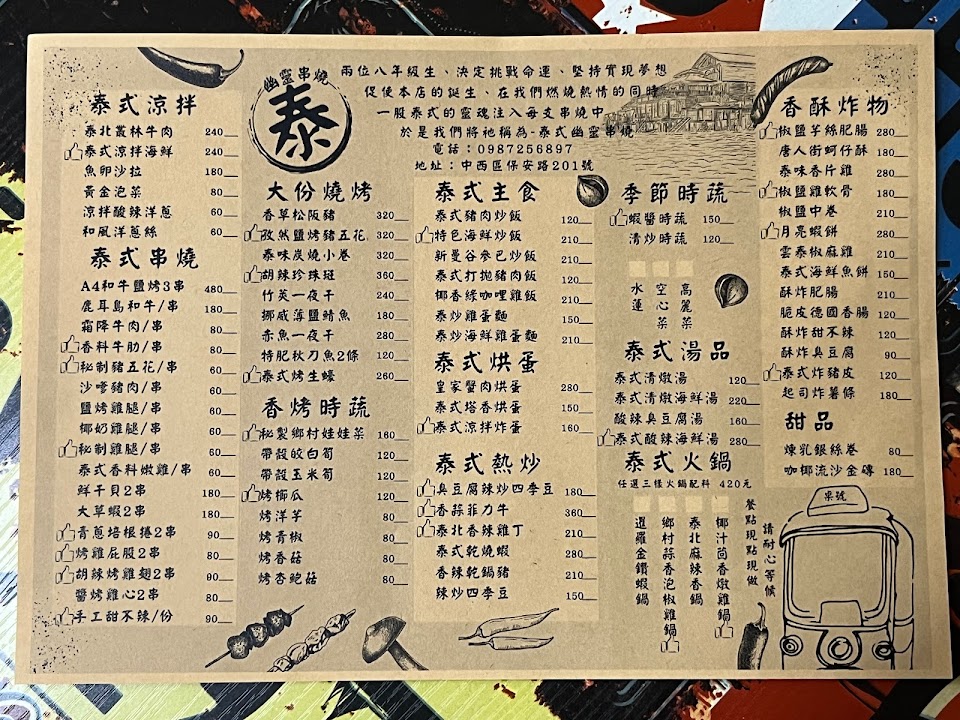 幽靈串燒
泰
兩位八年級生、決定挑戰命運、堅持實現夢想
促使本店的誕生、在我們燃燒熱情的同時
一股泰式的靈魂注入每支串燒中
於是我們將祂稱為-泰式幽靈串燒
電話：0987256897
地址：中西區保安路201號
泰式涼拌
泰北叢林牛肉 240
泰式涼拌海鮮 240
魚卵沙拉 180
黃金泡菜 80
涼拌酸辣洋蔥 60
和風洋蔥絲 60
泰式串燒
A4和牛鹽烤3串 480
鹿耳島和牛/串 180
霜降牛肉/串 80
香料牛肋/串 80
秘制豬五花/串 60
沙嗲豬肉/串 60
鹽烤雞腿/串 60
椰奶雞腿/串 60
秘制雞腿/串 60
泰式香料嫩雞/串 60
鮮干貝2串 180
大草蝦2串 180
青蔥培根捲2串 80
烤雞屁股2串 80
胡辣烤雞翅2串 90
醬烤雞心2串 80
手工甜不辣/份 90
大份燒烤
香草松阪豬 320
孜然鹽烤豬五花 320
泰味炭燒小卷 320
胡辣珍珠斑 360
竹莢一夜干 240
挪威薄鹽鯖魚 180
赤魚一夜干 280
特肥秋刀魚2條 120
泰式烤生蠔 260
香烤時蔬
秘製鄉村娃娃菜 160
帶殼皎白筍 120
帶殼玉米筍 120
烤櫛瓜 120
烤洋芋 80
烤青椒 80
烤香菇 80
烤杏鮑菇 80
泰式主食
泰式豬肉炒飯 120
特色海鮮炒飯 210
新曼谷參巴炒飯 210
泰式打拋豬肉飯 120
椰香綠咖哩雞飯 210
泰炒雞蛋麵 150
泰炒海鮮雞蛋麵 210
泰式烘蛋
皇家蟹肉烘蛋 280
泰式塔香烘蛋 150
泰式涼拌炸蛋 160
泰式熱炒
臭豆腐辣炒四季豆 180
香蒜菲力牛 360
泰北香辣雞丁 210
泰式乾燒蝦 280
香辣乾鍋豬 210
辣炒四季豆 150
季節時蔬
蝦醬時蔬 150
清炒時蔬 120
水蓮
空心菜
高麗菜
泰式湯品
泰式清燉湯 120
泰式清燉海鮮湯 220
酸辣臭豆腐湯 160
泰式酸辣海鮮湯 280
泰式火鍋
任選三樣火鍋配料 420元
椰汁茴香燉雞鍋
泰北麻辣香鍋
鄉村蒜香泡椒雞鍋
暹羅金鑽蝦鍋
香酥炸物
椒鹽芋絲肥腸 280
唐人街蚵仔酥 180
泰味香片雞 280
椒鹽雞軟骨 180
椒鹽中卷 210
月亮蝦餅 280
雲泰椒麻雞 210
泰式海鮮魚餅 150
酥炸肥腸 210
脆皮德國香腸 120
酥炸甜不辣 120
酥炸臭豆腐 90
泰式炸豬皮 120
起司炸薯條 180
甜品
煉乳銀絲卷 80
咖椰流沙金磚 180
桌號
請耐心等候
餐點現點現做